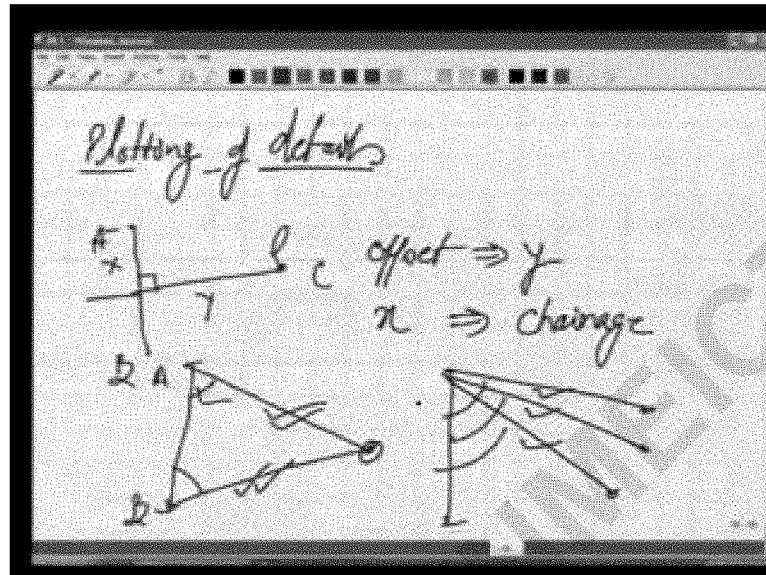 Plotting of details
A
x
y
C
offset ⇒ y
x ⇒ chainage
B
A
B
NMEICT